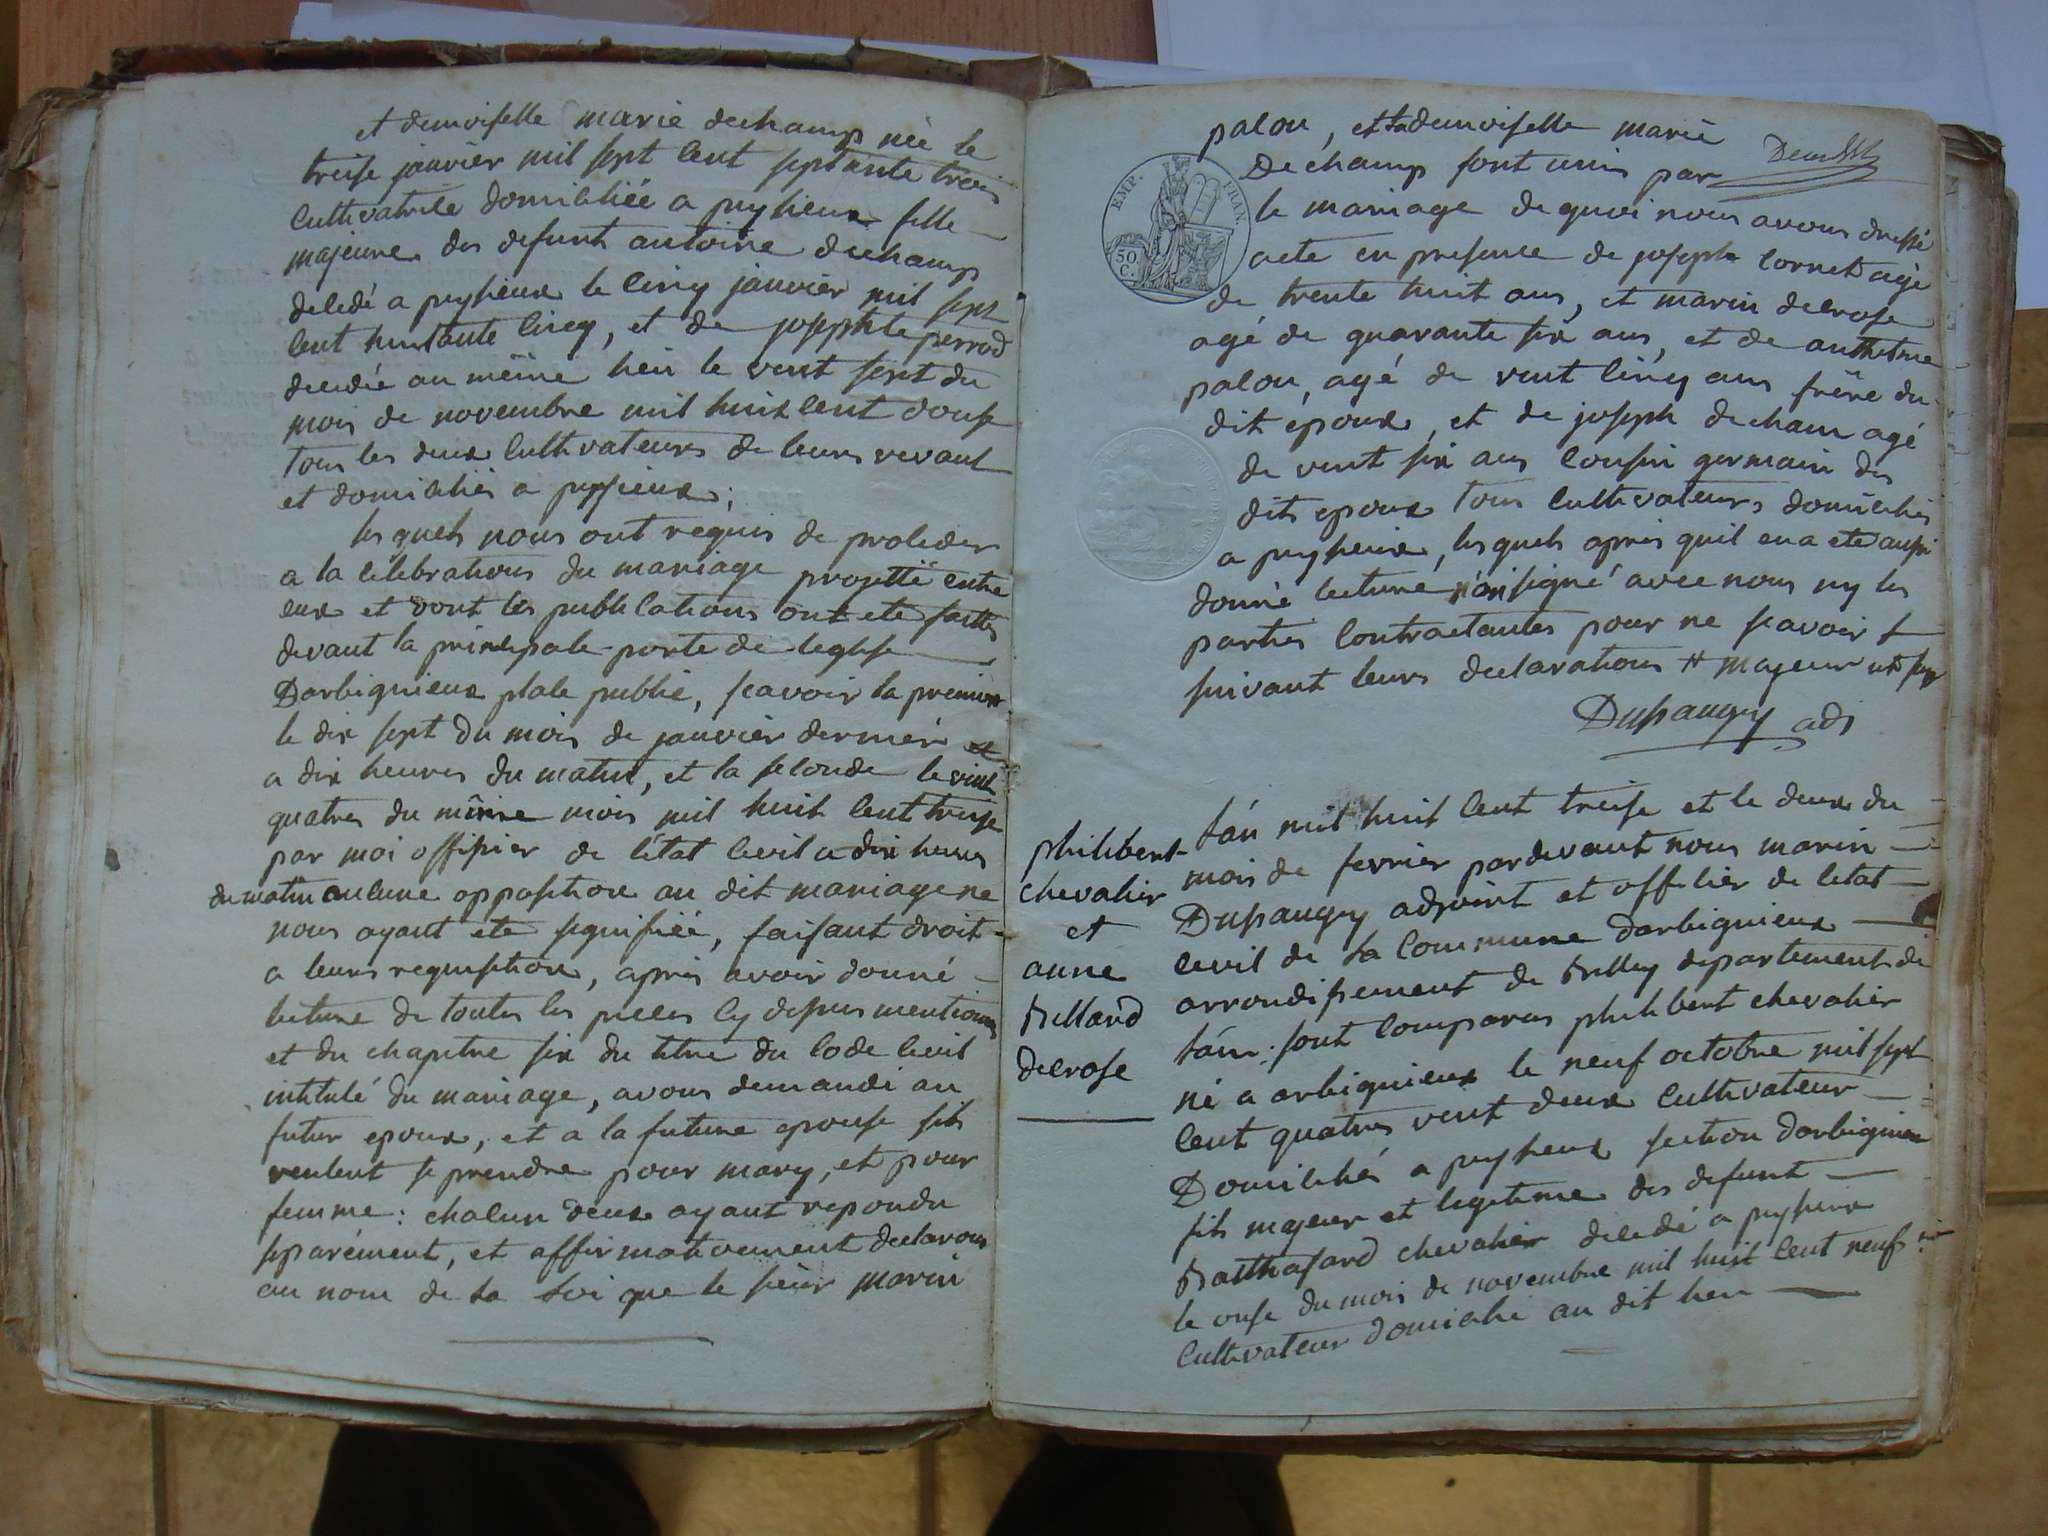 et demoiselle marie dechamp née le
treise janvier mil sept cent septante trois
cultivatrice domiciliée a peyzieux fille
majeure des defunt antoine dechamp
decedé a peyzieux le cinq janvier mil sept
cent huitante cinq, et de josephte perrod
decedée au même lieu le vint sept du
mois de novembre mil huit cent douse
tous les deux cultivateurs de leurs vivant
et domiciliés a peyzieux;
les quels nous ont requis de proceder
a la célébrations du mariage projetté entre
eux et dont les publications ont ete faittes
devant la principale porte de leglise
Darbignieux place public, scavoir la premiere
le dix sept du mois de janvier dernier
a dix heures du matin, et la seconde le vint
quatres du même mois mil huit cent treise
par moi offisier de l'état civil a dix heures
du matin auccune opposition au dit mariage ne
nous ayant ete signifiée, faisant droit
a leurs requisition, apres avoir donné
lecture de toutes les pieces cy dessus mentionnés
et du chapitre six du titre du code civil
intitulé du mariage, avons demandé au
futur epoux, et a la future epouse sils
veulent se prendre pour mary, et pour
femme: chacun deux ayant repondu
séparément, et affirmativement declarons
au nom de la loi que le sieur marin
palou, et la demoiselle marie
Dechamp sont unis par
le mariage de quoi nous avons dressé
acte en presence de joseph cornet agé
de trente huit ans, et marin decrose
agé de quarante six ans, et de anthelme
palou, agé de vint cinq ans frère du
dit epoux, et de joseph decham agé
de vint six ans cousin germain des
dits epoux tous cultivateurs domiciliés
a peyzieux, les quels apres quil en a ete aussi
donné lecture n'on signé avec nous ny les
parties contractantes pour ne scavoir
suivant leurs declarations # majeur
Dupaugey adj
EMP. FRAN.
50. C.
philibert
chevalier
et
anne
Billard
decrose
l'án mil huit cent treise et le deux du
mois de fevrier pardevant nous marin
Dupaugey adjoint et officier de letat
civil de la commune darbignieux
arrondissement de Belley departement de
l'áin: sont comparus philibert chevalier
né a arbignieux le neuf octobre mil sept
cent quatres vint deux cultivateur
Domiciliés a peyzieux section darbignieu
fils majeur et legitime des defunt
Balthasard chevalier decedé a peyzieux
le onse du mois de novembre mil huit cent neuf
cultivateur domicilié au dit lieu